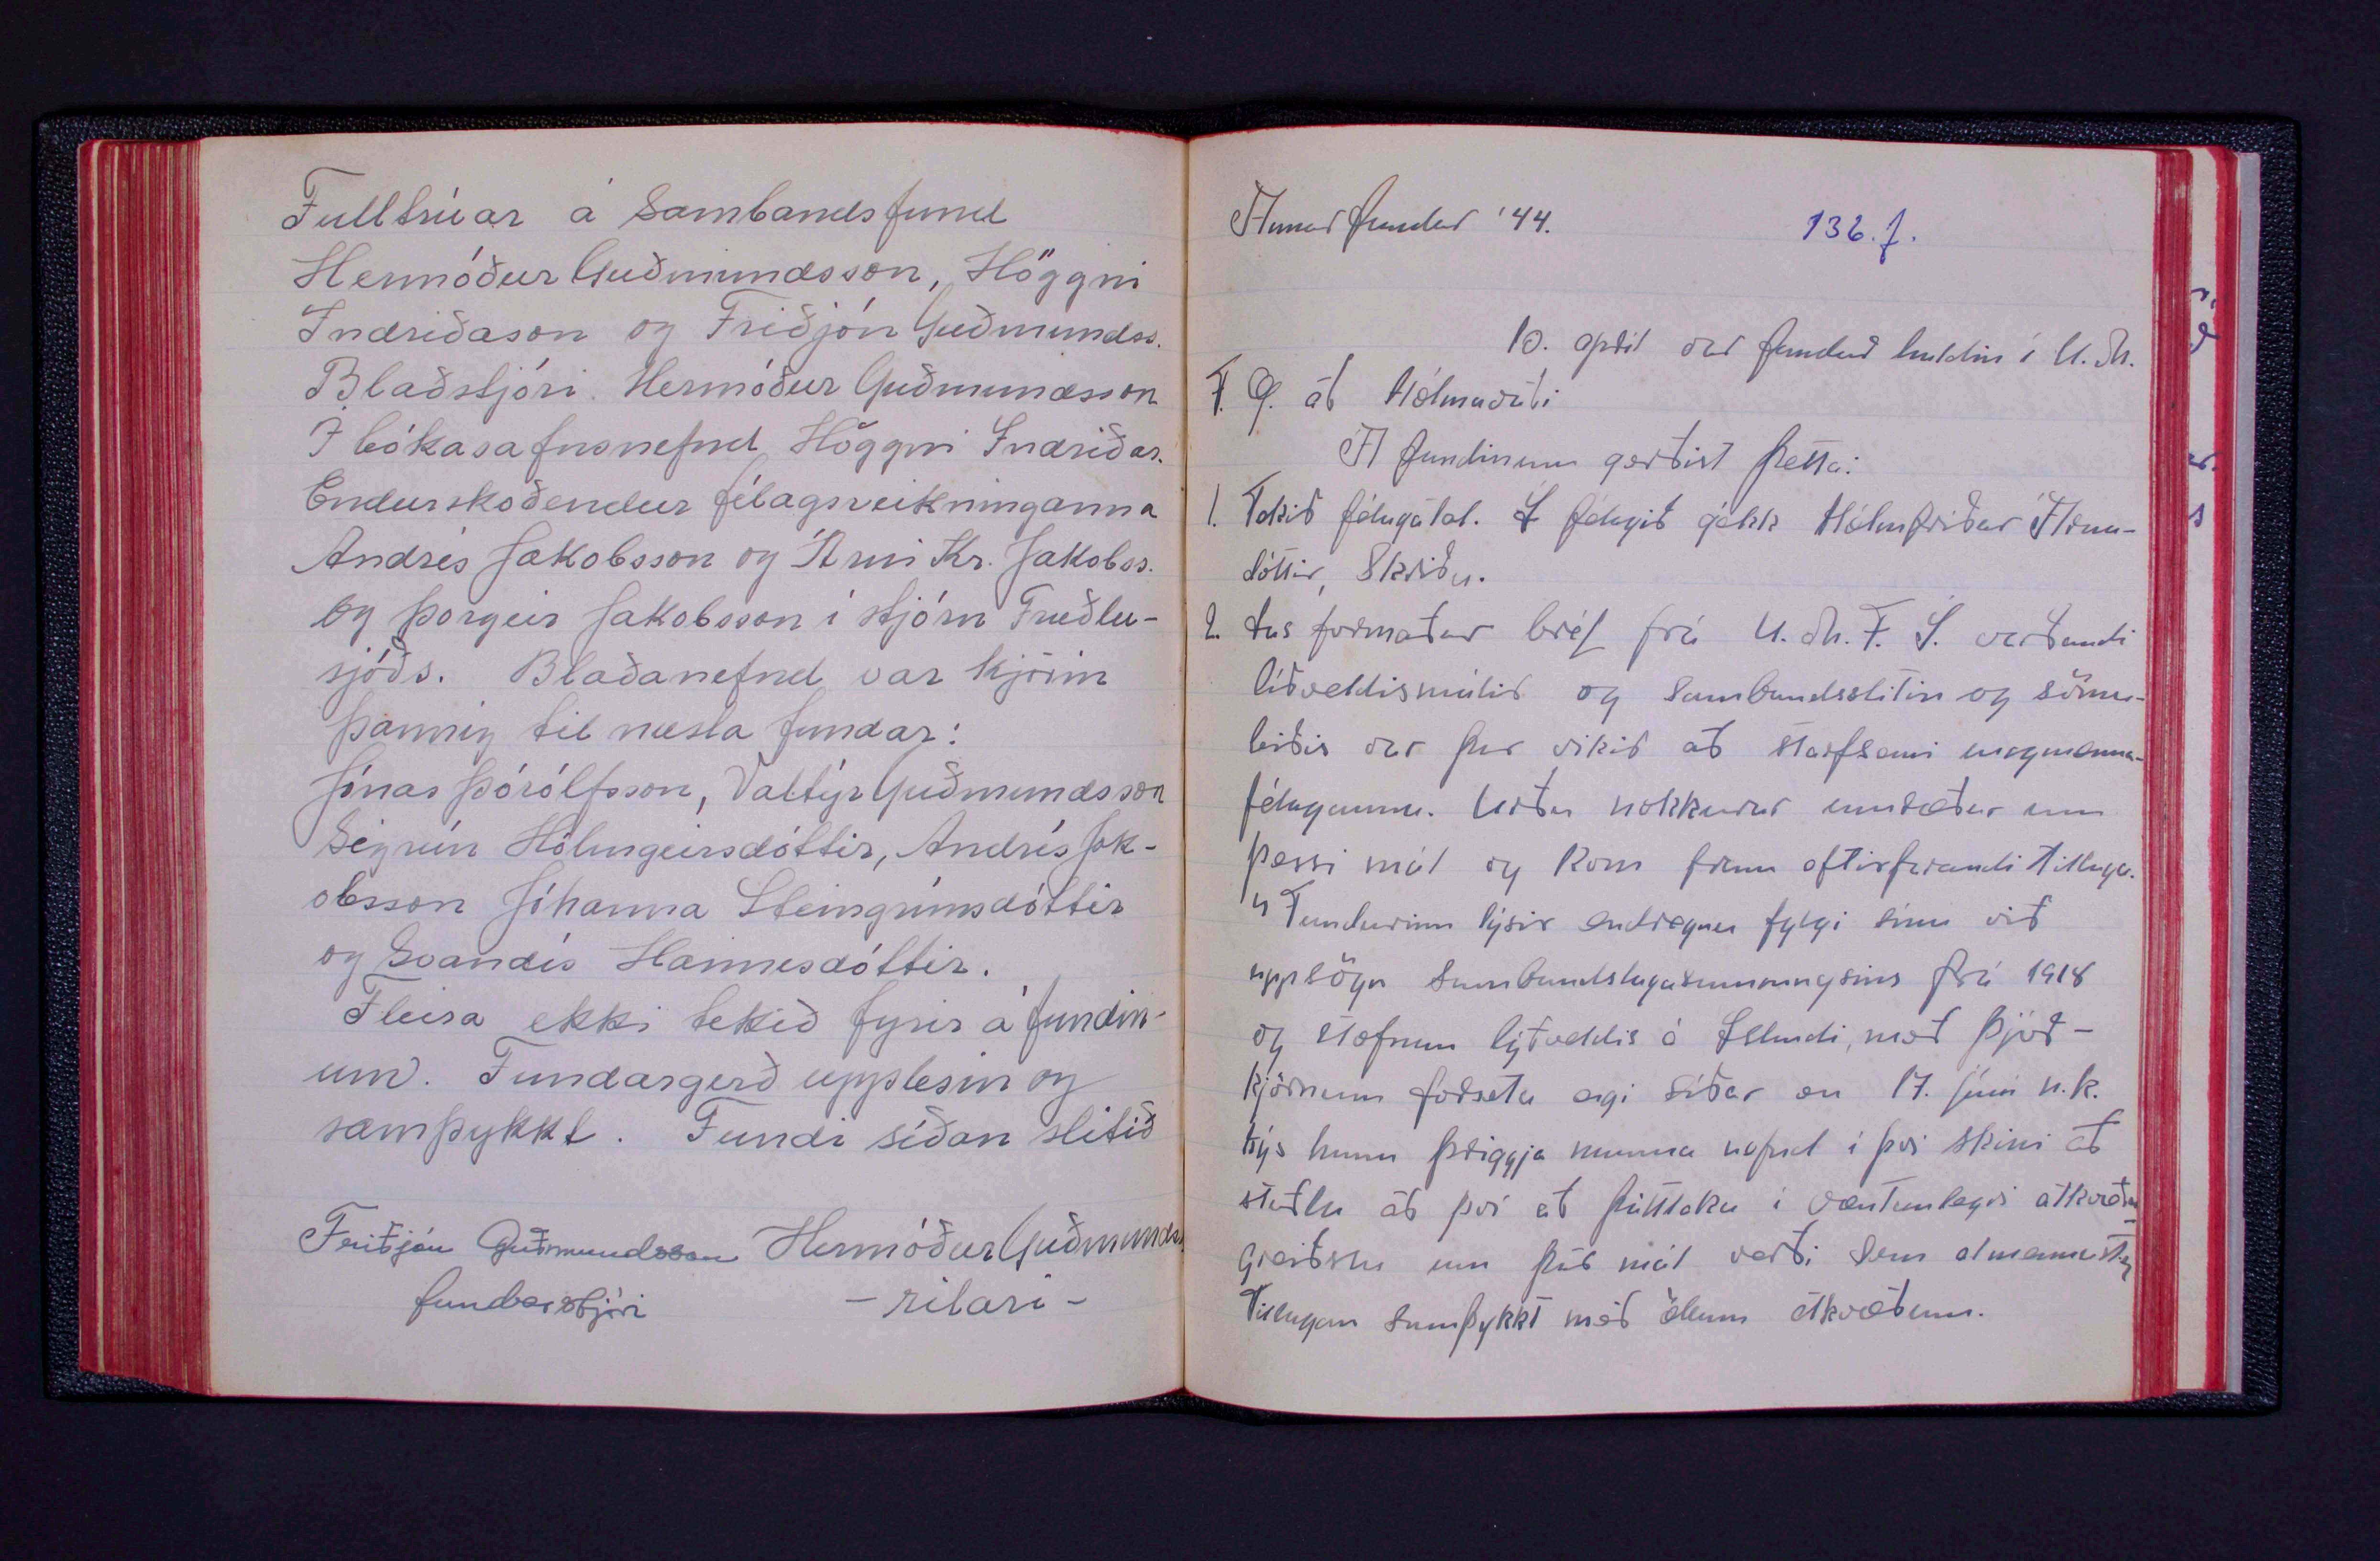 Fulltrúar á Sambandsfund
Hermóður Guðmundsson, Höggni
Indriðason og Friðjón Guðmundss.
Blaðstjóri. Hermóður Guðmundsson
Í bókasafnsnefnd Höggni Indriðas.
Endurskoðendur félagsreikninganna
Andrés Jakobsson og Árni Kr. Jakobss.
og Þorgeir Jakobsson í stjórn Fræðslu-
sjóðs. Blaðanefnd var kjörin
þannig til næsta fundar:
Jónas Þórólfsson, Valtýr Guðmundsson
Sigrún Hólmgeirsdóttir, Andrés Jak-
obsson Jóhanna Steingrímsdóttir
og Svandís Hannesdóttir.
Fleira ekki tekið fyrir á fundin-
um. Fundargerð upplesin og
samþykkt. Fundi síðan slitið
Friðjón Guðmundsson Hermóður Guðmundss.
fundarstjóri - ritari -
Annar fundur '44. 136. f.
10. apríl var fundur haldin í U.M.
F. G. að Hólmavaði
Á fundinum gerðist þetta:
1. Tekið félagatal. Í félagið gekk Hólmfríður Árna-
dóttir, Skriðu.
2. Las formaður bréf frá U.M.F.Í. varðandi
líðveldismálið og sambandsslitin og sömu-
leiðis var þar vikið að starfsemi ungmenna-
félaganna. Urðu nokkurar umræður um
þessi mál og kom fram eftirfarandi tillaga.
"Fundurinn lýsir eindregnu fylgi sínu við
uppsögn Sambandslagasamningsins frá 1918
og stofnun lýðveldis á Íslandi, með þjóð-
kjörnum forseta eigi síðar en 17. júní n.k.
Kýs hann þriggja manna nefnd í því skini að
stuðla að því að þátttaka í væntanlegri atkvæða-
greiðslu um það mál verði sem almennust"
Tillagan samþykkt með öllum atkvæðum.